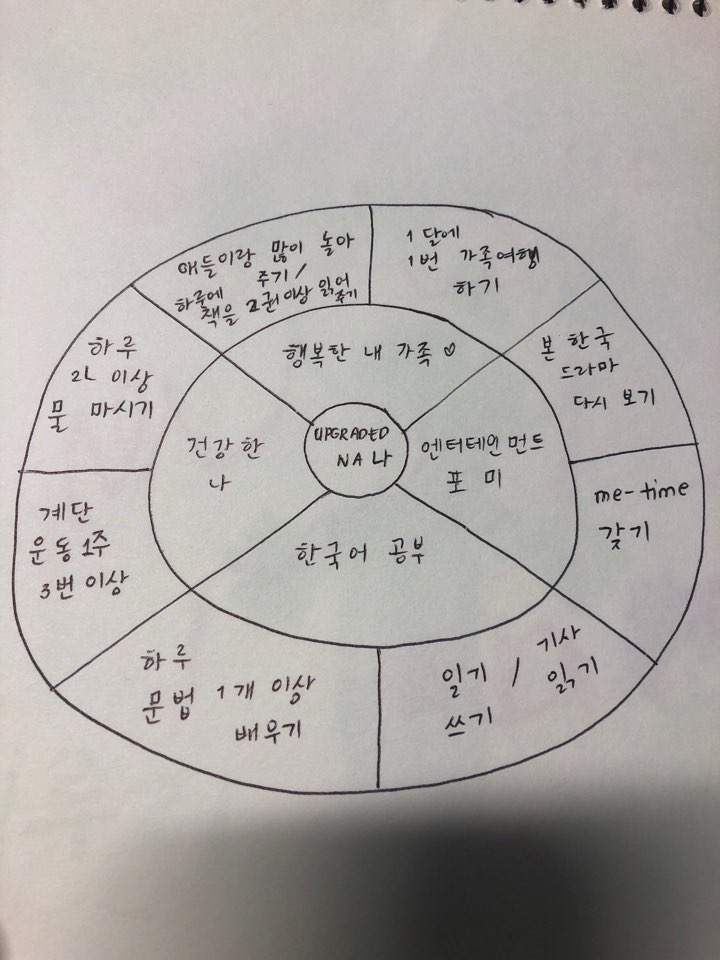 애들이랑 많이 놀아
주기 /
하루에
책을 2권 이상 읽어
주기
1 달에
1번 가족여행
하기
하루
2L 이상
물 마시기
행복한 내 가족 ♡
본 한국
드라마
다시 보기
건강한
나
UPGRADED
NA 나
엔터테인먼트
포 미
계단
운동 1주
3번 이상
한국어 공부
me-time
갖기
하루
문법 1개 이상
배우기
일기 /
쓰기
기사
읽기